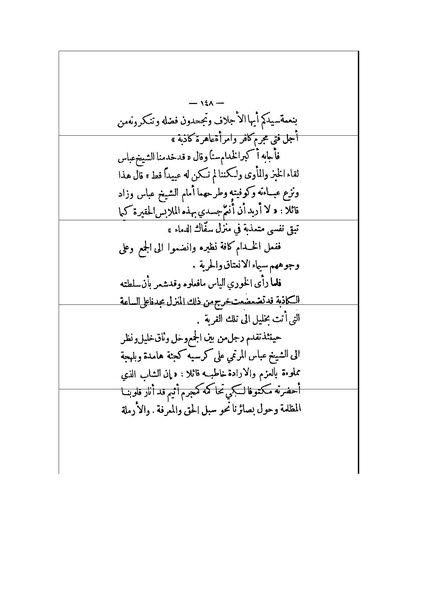 — ١٤٨ —
بنعمة سيدكم أيها الأجلاف وتجحدون فضله وتنكرونه من
أجل فتى مجرم كافر وامرأة عاهرة كاذبة »
فأجابه أكبر الخدام سناً وقال « قد خدمنا الشيخ عباس
لقاء الخبز والمأوى ولكننا لم نكن له عبيداً قط » قال هذا
ونزع عباءته وكوفيته وطرحهما أمام الشيخ عباس وزاد
قائلا : « لا أريد أن أُنعّم جسدي بهذه الملابس الحقيرة كيما
تبقى نفسي متعذبة في منزل سفّاك الدماء »
ففعل الخدام كافة نظيره وانضموا الى الجمع وعلى
وجوههم سيماء الانعتاق والحرية .
فلما رأى الخوري الياس ما فعلوه وقد شعر بأن سلطته
الكاذبة قد تضعضعت خرج من ذلك المنزل مجدفا على الساعة
التي أتت بخليل الى تلك القرية .
حينئذ تقدم رجل من بين الجمع وحل وثاق خليل ونظر
الى الشيخ عباس المرتمي على كرسيه كجثة هامدة وبلهجة
مملوءة بالعزم والارادة خاطبه قائلا : « إن الشاب الذي
أحضرته مكتوفا لكي تحاكمه كمجرم أثيم قد أنار قلوبنا
المظلمة وحول بصائرنا نحو سبل الحق والمعرفة . والأرملة